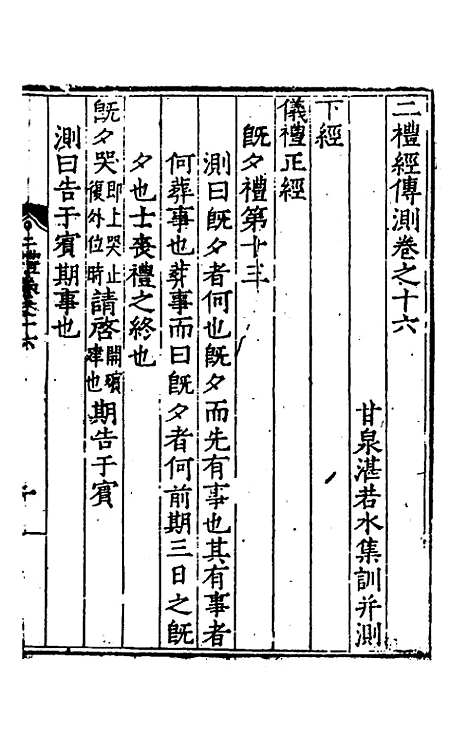 二禮經傳測卷之十六
甘泉湛若水集訓并測
下經
儀禮正經
既夕禮第十三
測曰既夕者何也既夕而先有事也其有事者
何葬事也葬事而曰既夕者何前期三日之既
夕也士喪禮之終也
既夕哭即上哭止復外位時請啓開殯期告于賓
測曰告于賓期事也